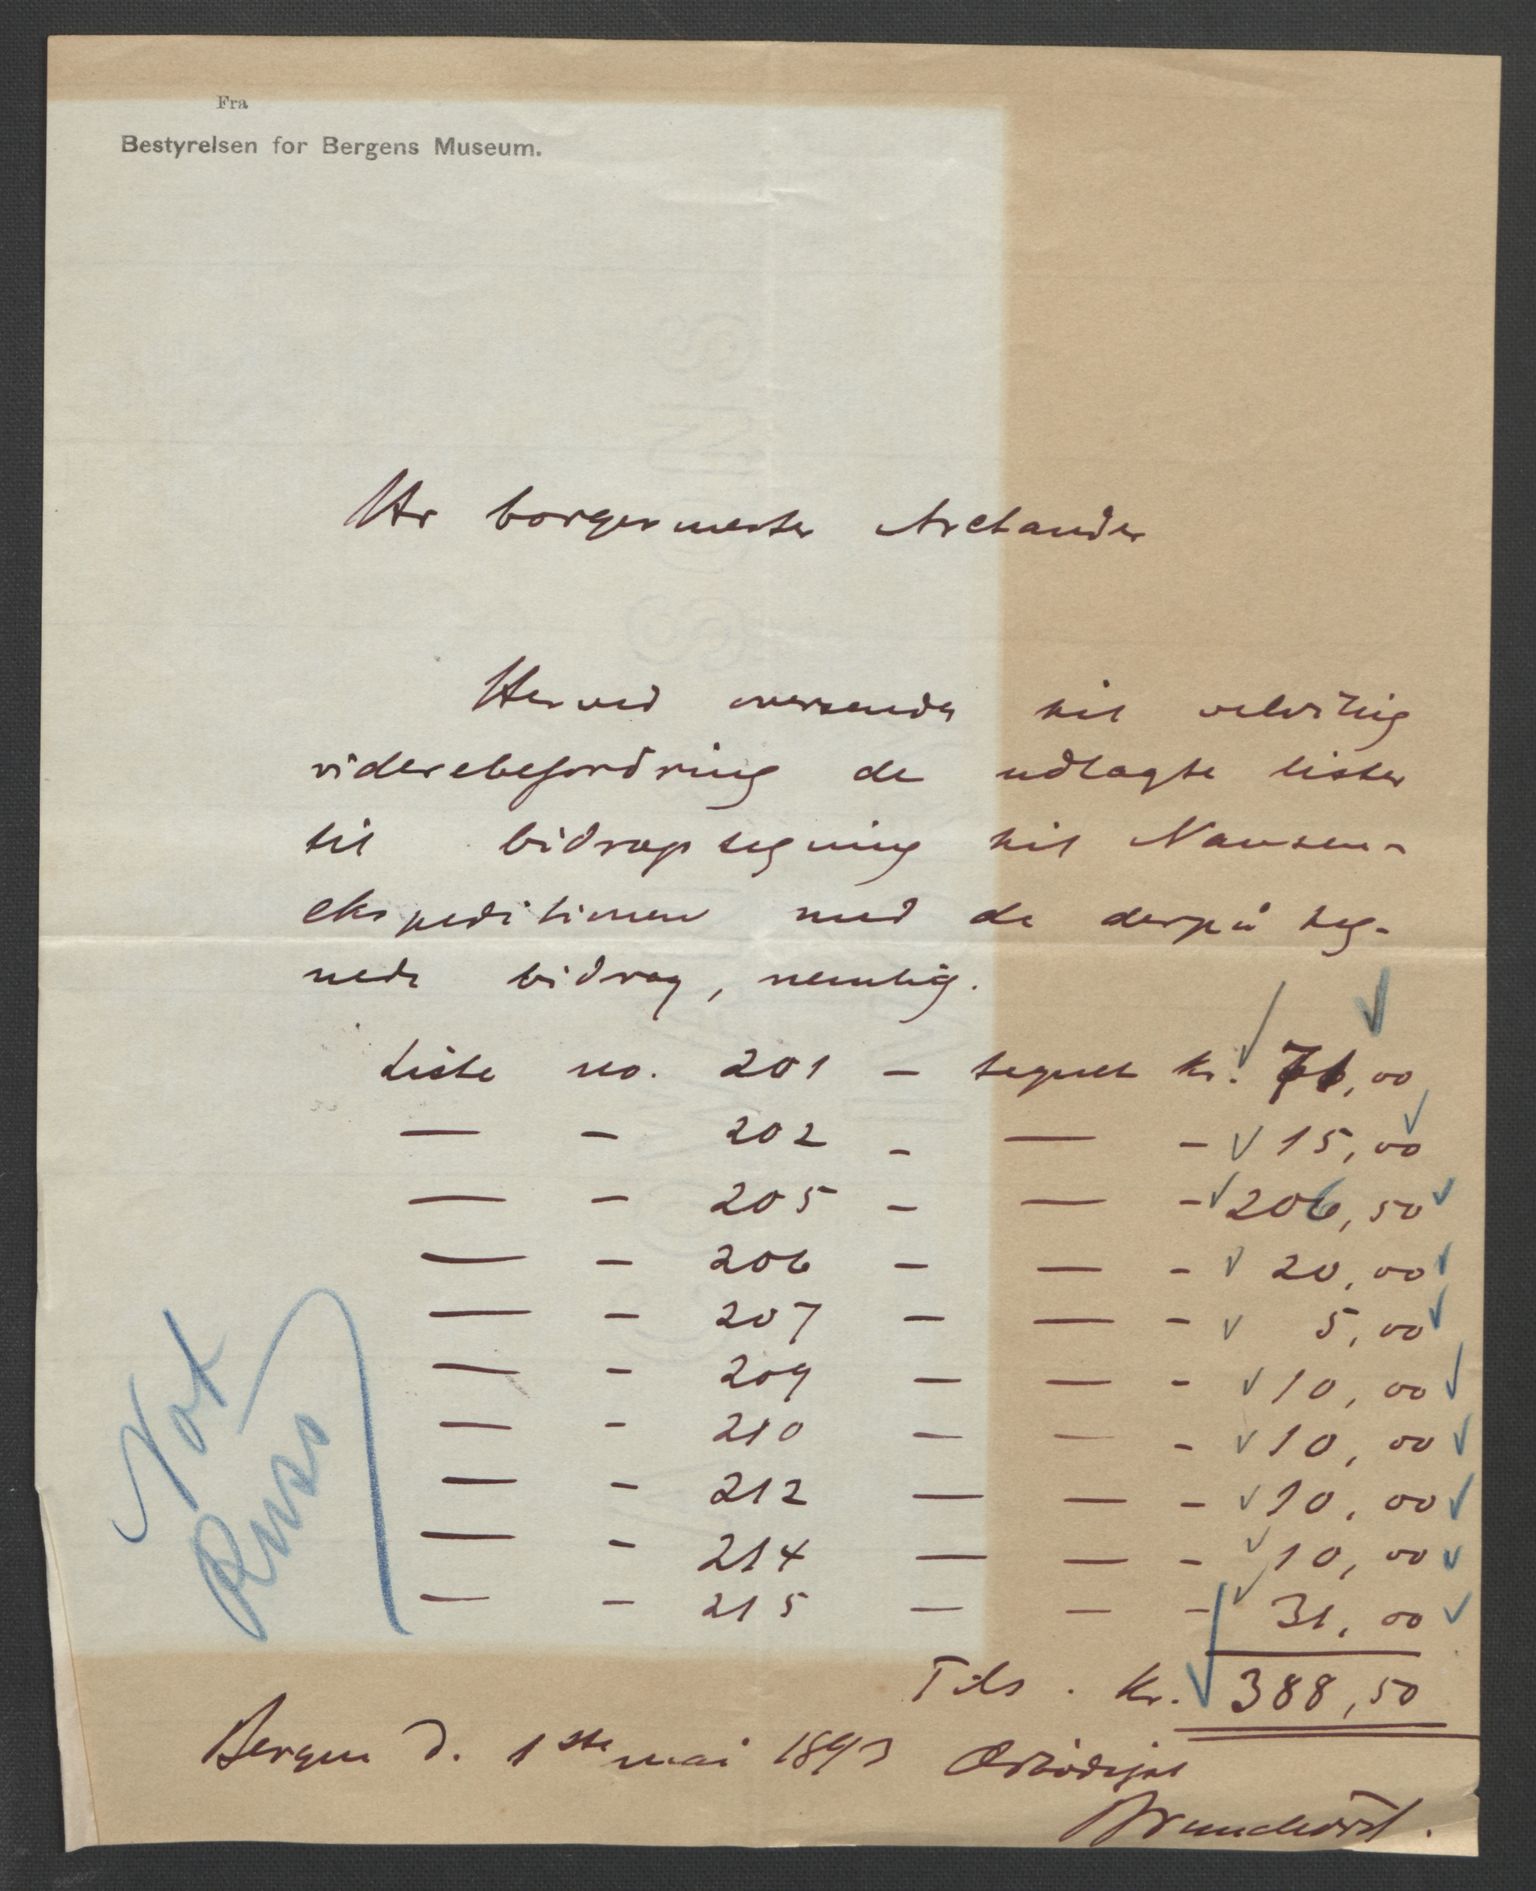 Fra
Bestyrelsen for Bergens Museum.
Hr borgermester Arctander
Herved oversendes til velvillig
viderebefordring de udlagte lister
til bidragstegning til Nansen-
ekspeditionen med de derpå teg-
nede bidrag, nemlig.
Liste no. 201 - tegnet kr. 71,00
— - 202 - — - 15,00
— - 205 - — - 206,50
— - 206 - — - 20,00
— - 207 - — - 5,00
— - 209 - — - 10,00
— - 210 - — - 10,00
— - 212 - — - 10,00
— - 214 - — - 10,00
— - 215 - — - 31,00
Tils. kr. 388,50
Bergen d. 1ste mai 1893 Ærbødigst
Brunchorst.
Not
Russ